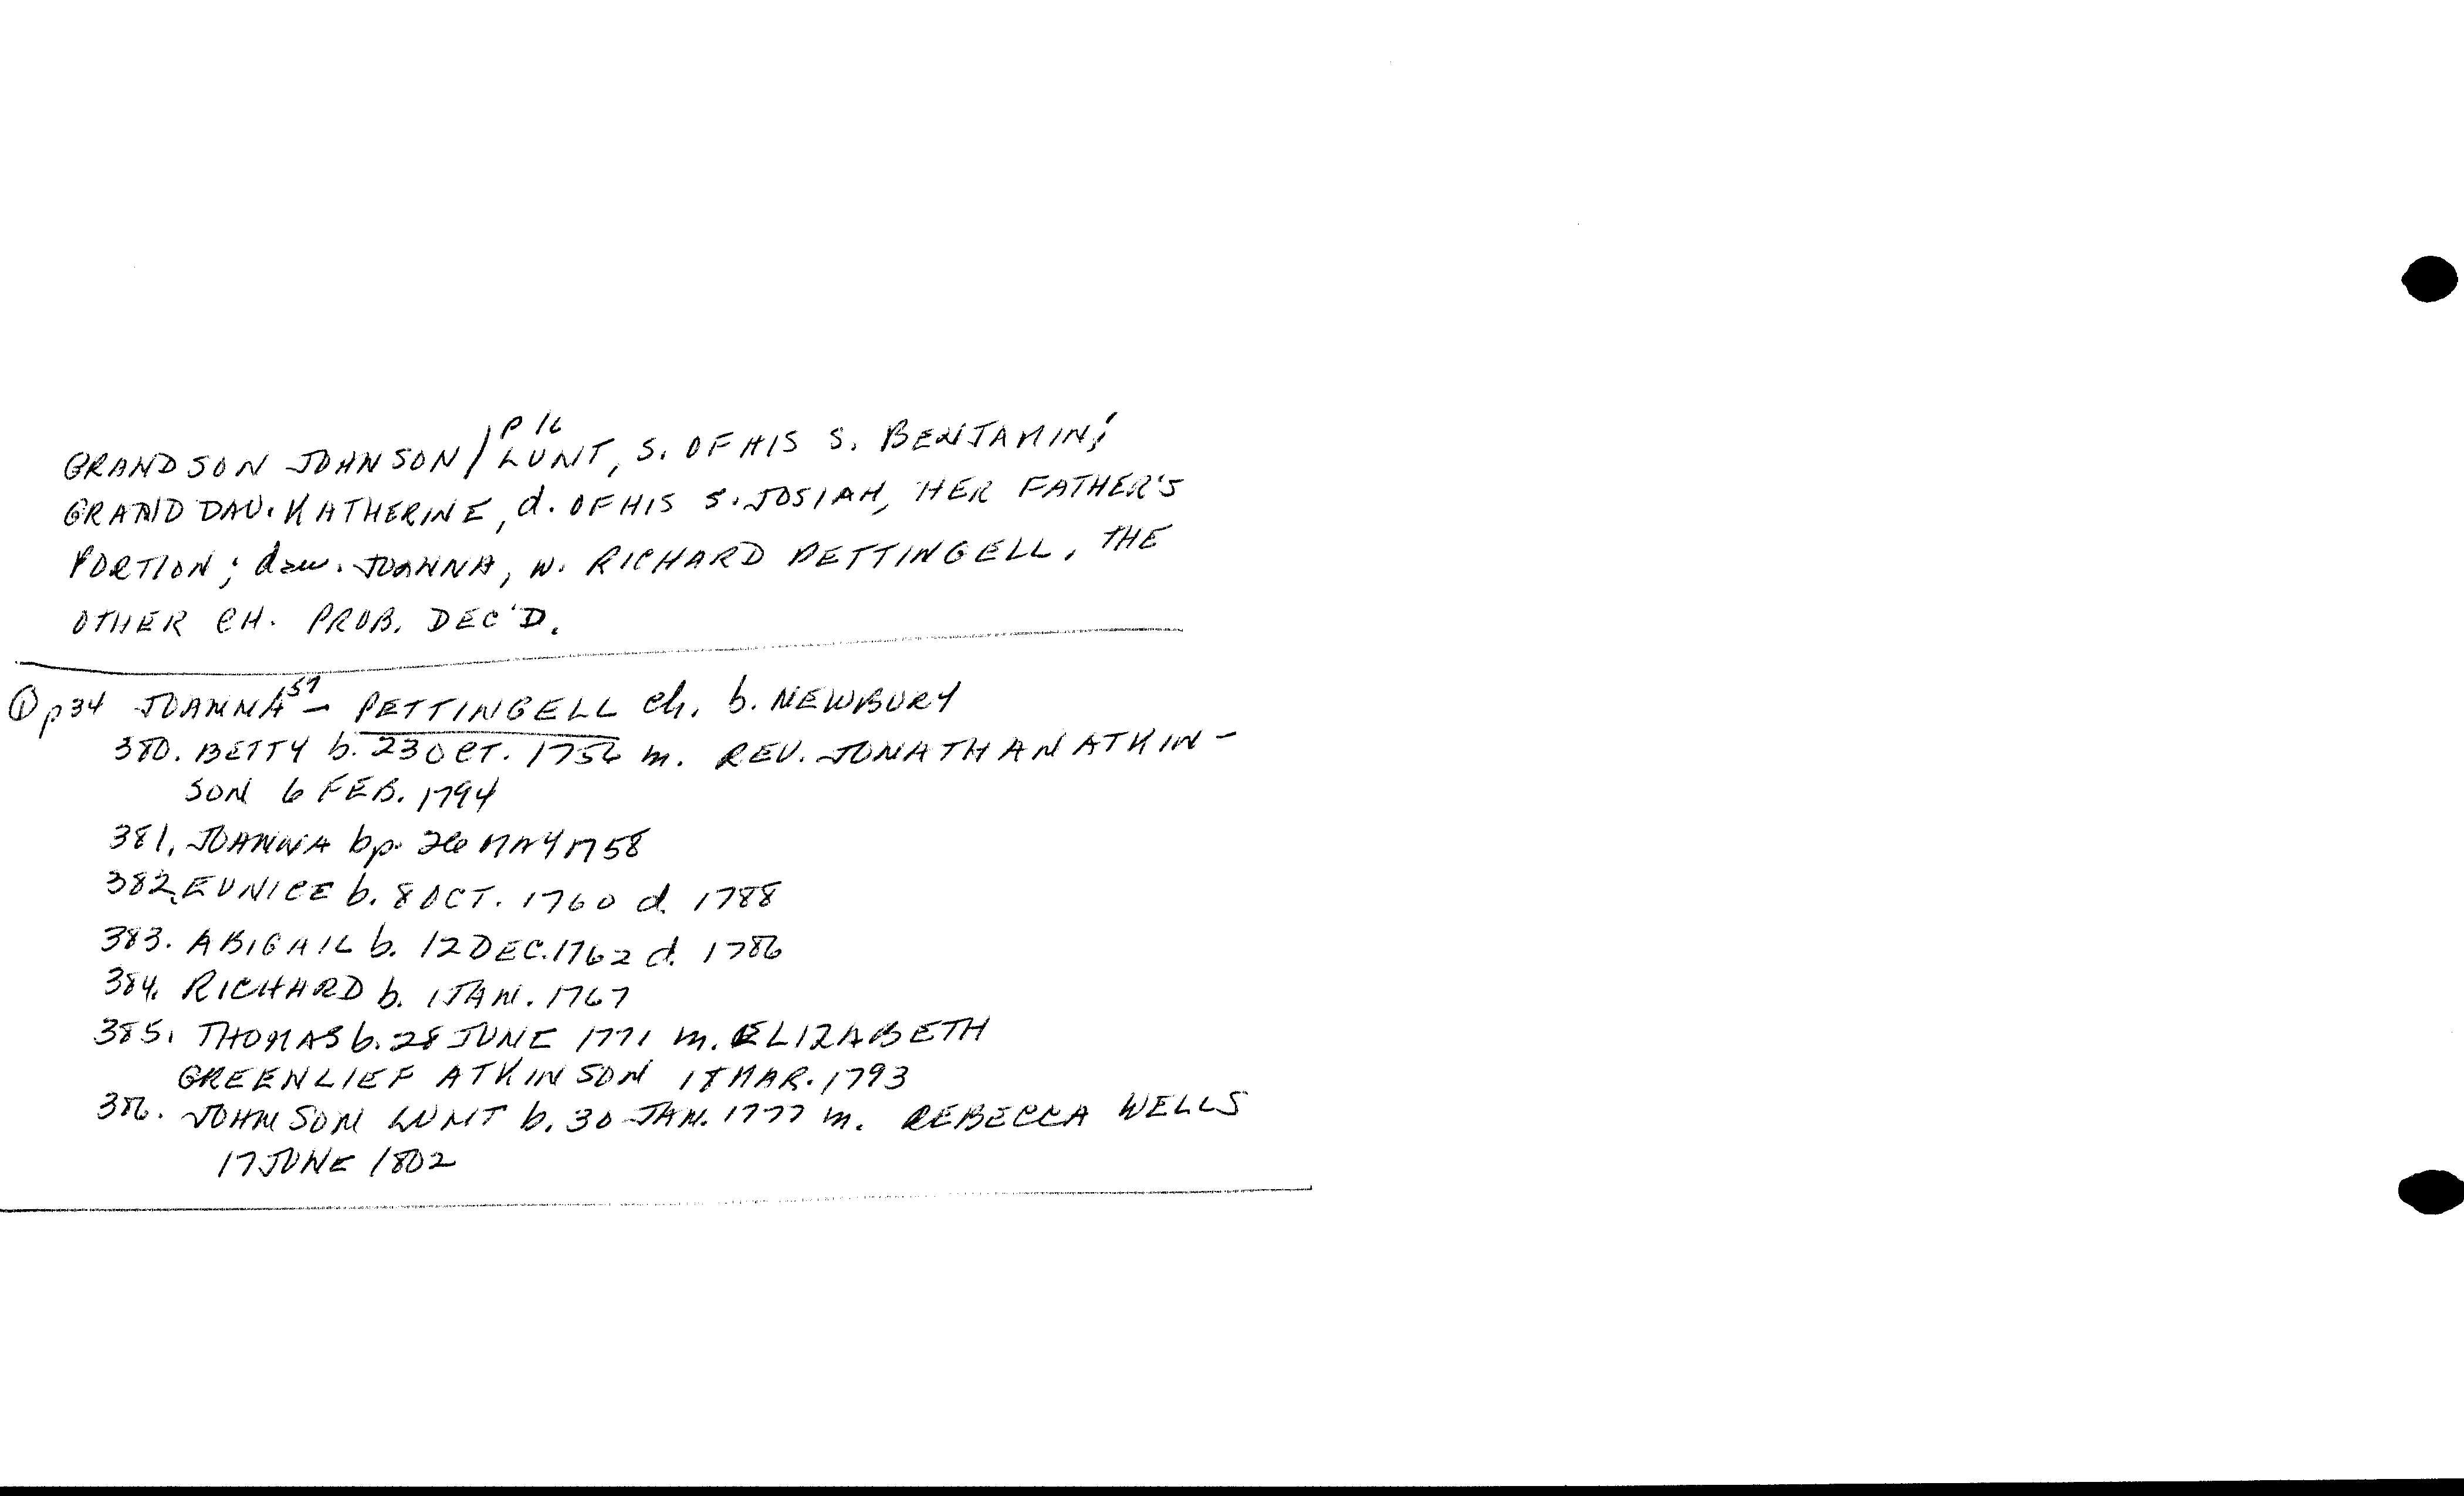 P 16
GRANDSON JOHNSON / LUNT, S. OF HIS S. BENJAMIN;
GRAND DAU. KATHERINE, d. OF HIS S. JOSIAH, HER FATHER'S
PORTION; dau. JOANNA, W. RICHARD PETTINGELL, THE
OTHER CH. PROB. DEC'D.
① p 34 JOANNA 157 - PETTINGELL ch. b. NEWBURY
380. BETTY b. 23 OCT. 1756 m. REV. JONATHAN ATKIN-
SON 6 FEB. 1794
381. JOANNA bp. 26 MAY 1758
382. EUNICE b. 8 OCT. 1760 d. 1788
383. ABIGAIL b. 12 DEC. 1762 d. 1786
384. RICHARD b. 1 JAN. 1767
385. THOMAS b. 28 JUNE 1771 m. ELIZABETH
GREENLIEF ATKINSON 18 MAR. 1793
386. JOHNSON LUNT b. 30 JAN. 1777 m. REBECCA WELLS
17 JUNE 1802